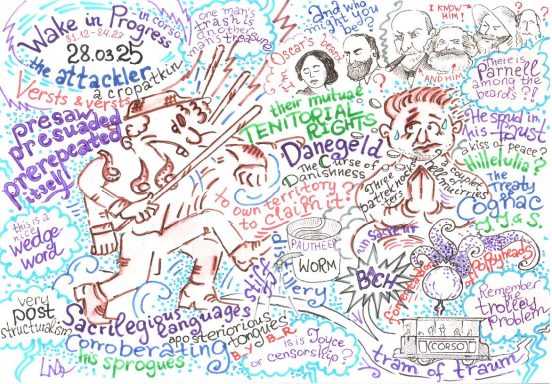 Wake in Progress
in corso
81.12-84.27
28.03.25
the attackler
a cropatkin
Versts & versts
presaw
presuaded
prerepeated
itself!
this is a
nice
wedge-
word
very
post
structuralism
LNG
Sacrilegious languages
Corroberating
his sprogues
aposteriorious
tongues
B_Y B_R
is is Joyce
or censorship?
one man's
trash is
another
man's treasure
I'm Oscar's beard
and who
might you
be??
I KNOW
HIM!
AND HIM!
?
?
There is
Parnell
among the
beards?!!
their mutual
TENITORIAL
RIGHTS
Danegeld
The Curse of
Danishness
to own territory
or to claim it?
Three
patterneck
eners
a couple
allmurries
He spud in
his faust
a kiss of peace?
Hillelulia?
The Treaty
of Cognac
J.J. & S.
PAUTHEEN
WORM
BACH
poppyheads
Remember
the
trolley
problem
CORSO
tram of traum